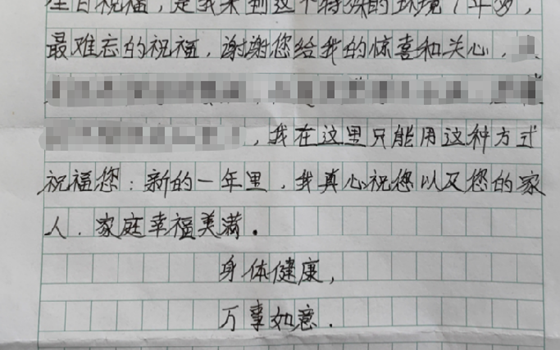 生日祝福，是我来到这个特殊的环境1年多，
最难忘的祝福，谢谢您给我的惊喜和关心，
，我在这里只能用这种方式
祝福您：新的一年里，我真心祝您以及您的家
人．家庭幸福美满．
身体健康，
万事如意．